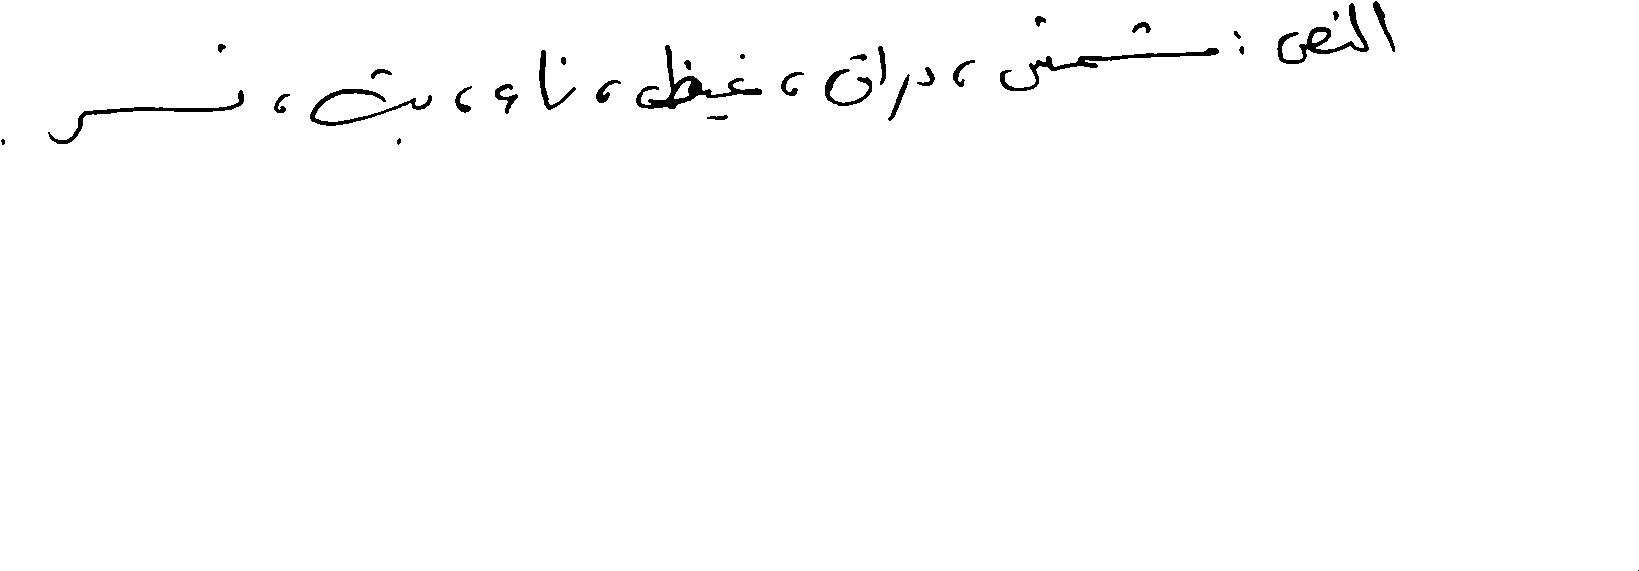 النص : شمس ، دراق ، غيظ ، ناء ، بت ، نسر .